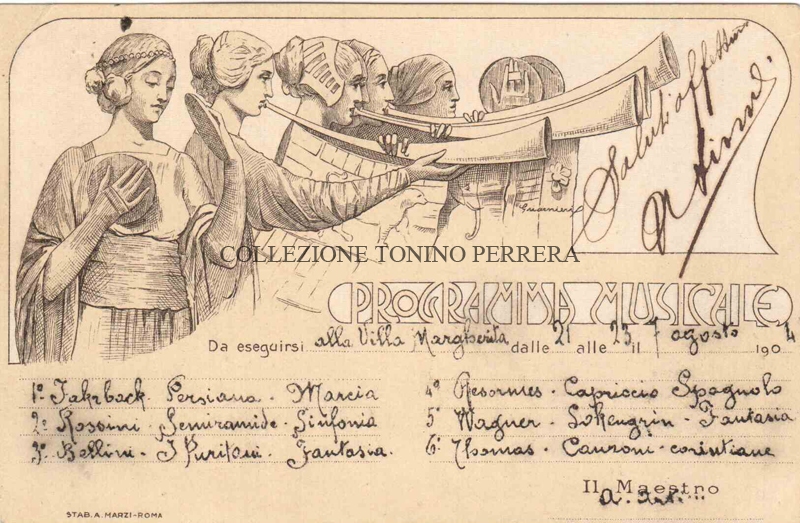 Saluti affettuosi
Guarnieri
COLLEZIONE TONINO PERRERA
PROGRAMMA MUSICALE
Da eseguirsi alla Villa Margherita dalle 21 alle 23 il 7 agosto 1904
1º Fahrback. Persiana. Marcia
2º Rossini. Semiramide. Sinfonia
3º Bellini. I Puritani. Fantasia.
4º Desormes. Capriccio Spagnolo
5º Wagner. Lohengrin. Fantasia
6º Thomas. Canzoni. corintiane
Il Maestro
STAB. A. MARZI-ROMA